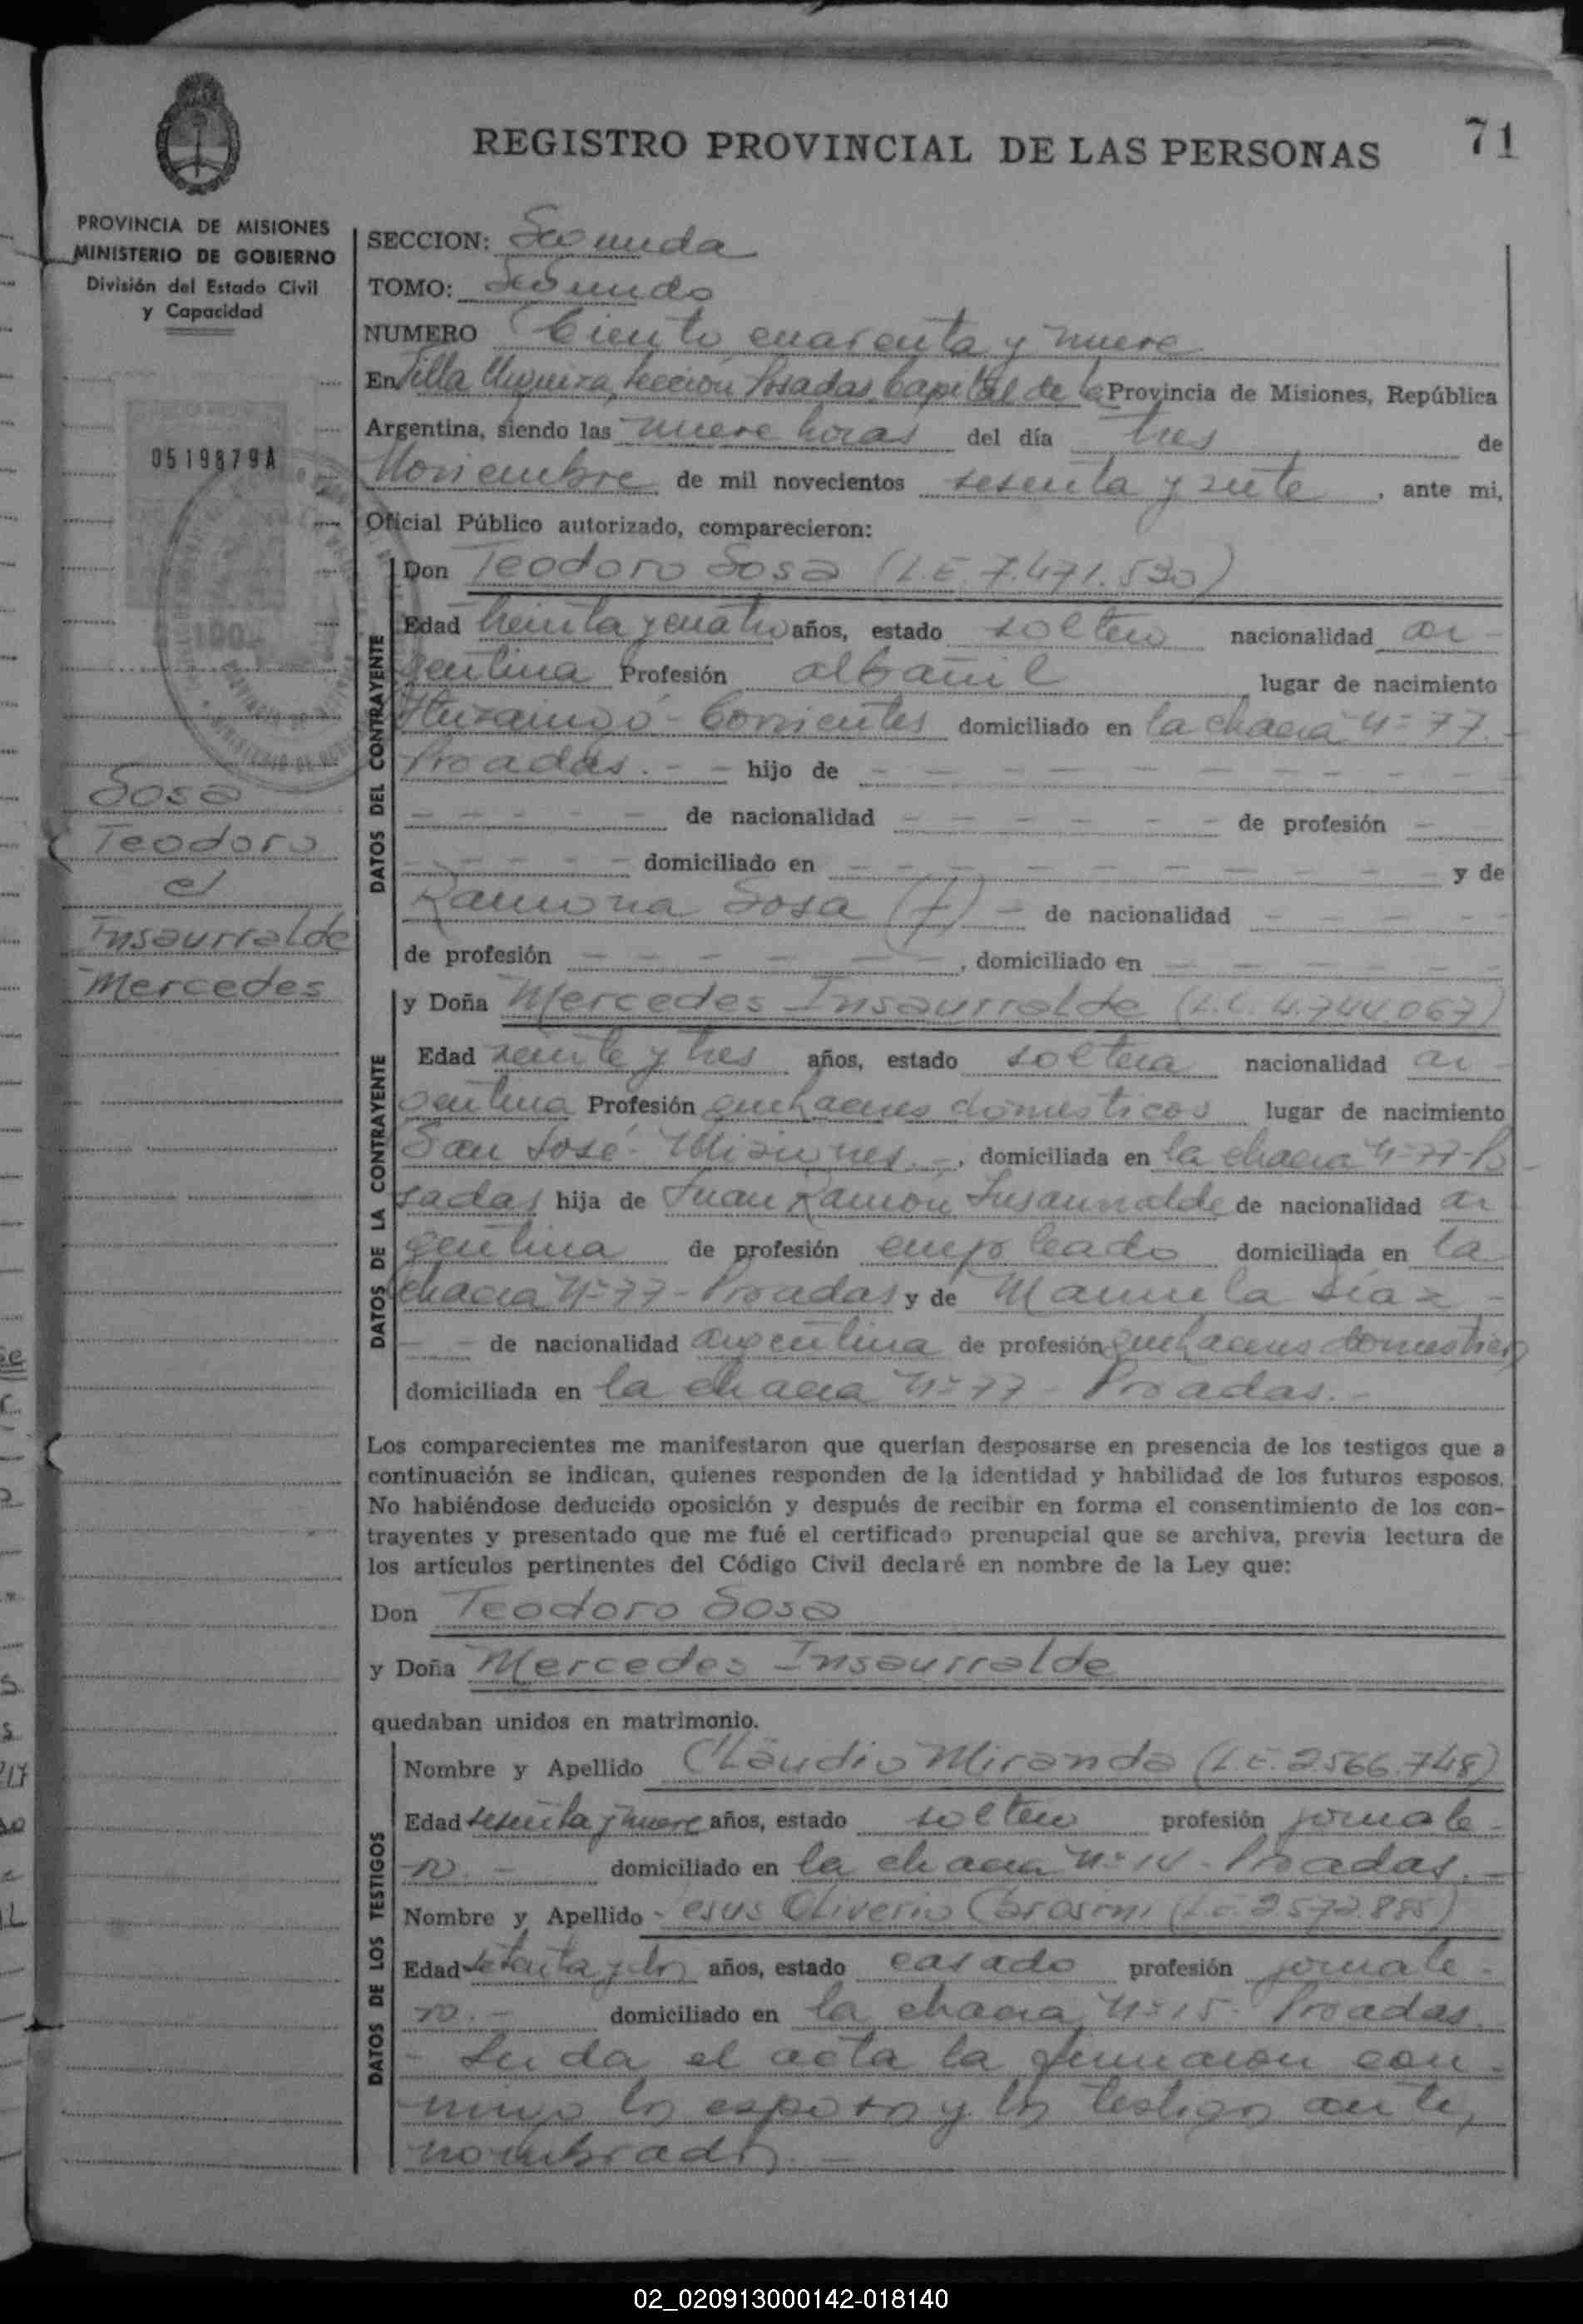 REGISTRO PROVINCIAL DE LAS PERSONAS
71
PROVINCIA DE MISIONES
MINISTERIO DE GOBIERNO
División del Estado Civil
y Capacidad
0519879A
100
Sosa
Teodoro
c/
Insaurralde
Mercedes
SECCION: Segunda
TOMO: Segundo
NUMERO Ciento cuarenta y nueve
En Villa Urquiza, sección Posadas, Capital de la Provincia de Misiones, República
Argentina, siendo las nueve horas del día tres de
Noviembre de mil novecientos sesenta y siete, ante mi,
Oficial Público autorizado, comparecieron:
DATOS DEL CONTRAYENTE
Don Teodoro Sosa (L.E 7.471.530)
Edad treinta y cuatro años, estado soltero nacionalidad ar-
gentina Profesión albañil lugar de nacimiento
Ituzaingó - Corrientes domiciliado en la chacra Nº 77.-
Posadas. - - hijo de - - - - - - - -
- - - - - - de nacionalidad - - - - - - de profesión -
- - - - - domiciliado en - - - - - - - - y de
Ramona Sosa (f) - de nacionalidad - - - -
de profesión - - - - - - -, domiciliado en - - - - - -
DATOS DE LA CONTRAYENTE
y Doña Mercedes Insaurralde (L.C. 4.744.067)
Edad veinte y tres años, estado soltera nacionalidad ar-
gentina Profesión quehaceres domésticos lugar de nacimiento
San José - Misiones. -, domiciliada en la chacra Nº 77-Po-
sadas hija de Juan Ramón Insaurralde de nacionalidad ar
gentina de profesión empleado domiciliada en la
chacra Nº 77 - Posadas y de Manuela Díaz -
- - de nacionalidad argentina de profesión quehaceres domésticos
domiciliada en la chacra Nº 77 - Posadas. -
Los comparecientes me manifestaron que querían desposarse en presencia de los testigos que a
continuación se indican, quienes responden de la identidad y habilidad de los futuros esposos.
No habiéndose deducido oposición y después de recibir en forma el consentimiento de los con-
trayentes y presentado que me fué el certificado prenupcial que se archiva, previa lectura de
los artículos pertinentes del Código Civil declaré en nombre de la Ley que:
Don Teodoro Sosa
y Doña Mercedes Insaurralde
quedaban unidos en matrimonio.
DATOS DE LOS TESTIGOS
Nombre y Apellido Claudio Miranda (L.E. 2.566.748)
Edad sesenta y nueve años, estado soltero profesión jornale-
ro. - domiciliado en la chacra Nº 14 - Posadas. -
Nombre y Apellido Jesus Oliverio (L.E. 2.572.885)
Edad setenta y dos años, estado casado profesión jornale-
ro. - domiciliado en la chacra Nº 15 - Posadas.
- Leida el acta la firmaron con-
migo los esposos y los testigos ante
nombrados. -
02_020913000142-018140